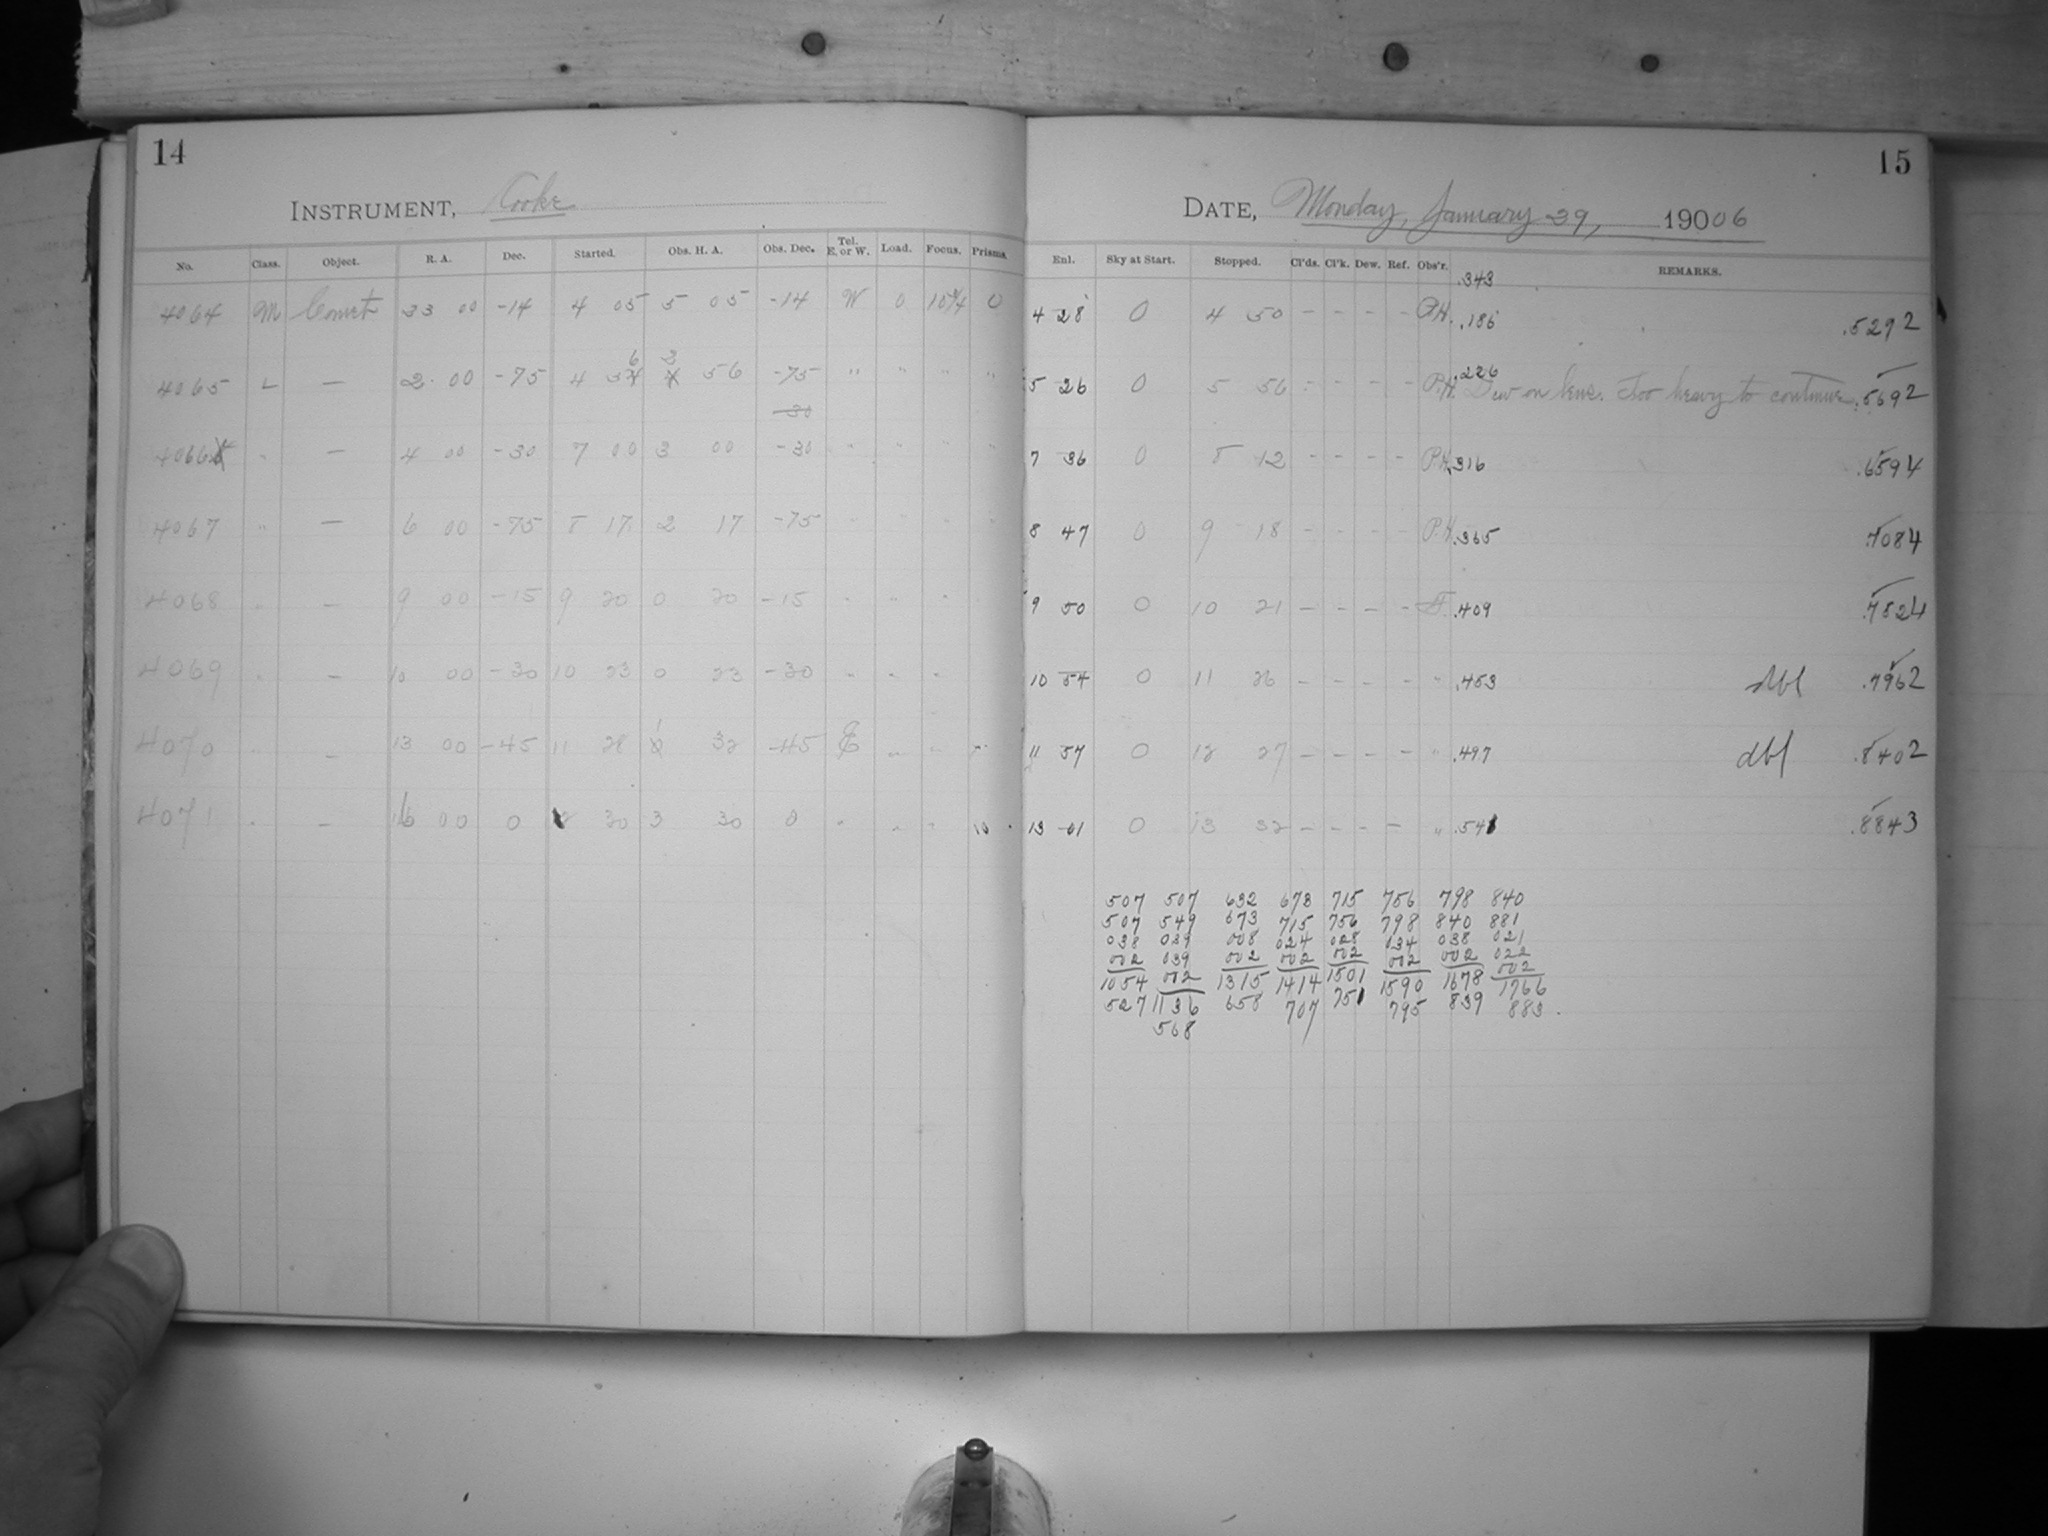 14
INSTRUMENT, Cooke
No. Class. Object. R. A. Dec. Started. Obs. H. A. Obs. Dec. Tel. E. or W. Load. Focus. Prisms.
4064 M Comet 23 00 -14 4 05 5 05 -14 W 0 10 3/4 0
4065 L — 2 00 -75 4 56 2 56 -75 " " " "
-30
4066 " — 4 00 -30 7 00 3 00 -30 " " " "
4067 " — 6 00 -75 8 17 2 17 -75 " " " "
4068 " — 9 00 -15 9 20 0 20 -15 " " " "
4069 " — 10 00 -30 10 23 0 23 -30 " " "
4070 " — 13 00 -45 11 28 1 32 -45 E " " "
4071 " — 16 00 0 12 30 3 30 0 " " " 10
15
DATE, Monday, January 29, 1906
Enl. Sky at Start. Stopped. Cl'ds. Cl'k. Dew. Ref. Obs'r. REMARKS.
.343
4 28 0 4 50 - - - - P.H. .186 .5292
5 26 0 5 56 - - - - P.H. .226 Dew on lens. Too heavy to continue. .5692
7 36 0 8 12 - - - - P.H. .316 .6594
8 47 0 9 18 - - - - P.H. .365 .7084
9 50 0 10 21 - - - - .409 .7524
10 54 0 11 26 - - - - " .453 dbl .7962
11 57 0 12 27 - - - - " .497 dbl .8402
13 01 0 13 32 - - - - " .541 .8843
507 507 632 673 715 756 798 840
507 549 673 715 756 798 840 881
038 039 008 024 028 034 038 021
002 039 002 002 002 002 002 022
1054 002 1315 1414 1501 1590 1678 002
527 1136 658 707 751 795 839 1766
568 883